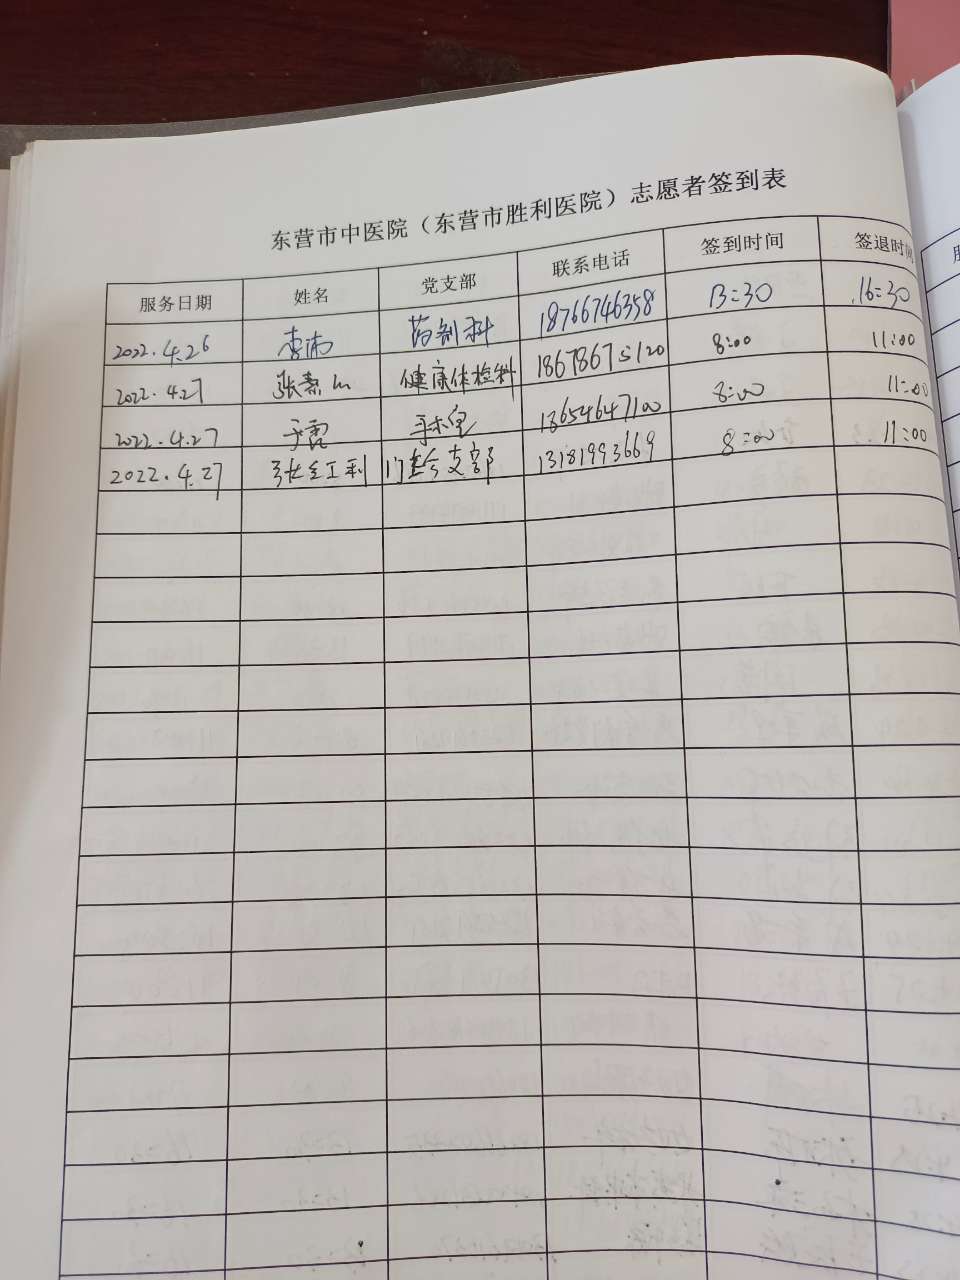 东营市中医院（东营市胜利医院）志愿者签到表
服务日期 姓名 党支部 联系电话 签到时间 签退时间
2022.4.26 李浦 药剂科 18766746358 13:30 16:30
2022.4.27 张素 健康体检科 18678675120 8:00 11:00
2022.4.27 于霞 手术室 13654647100 8:00 11:00
2022.4.27 张红利 门诊支部 13181993669 8:00 11:00